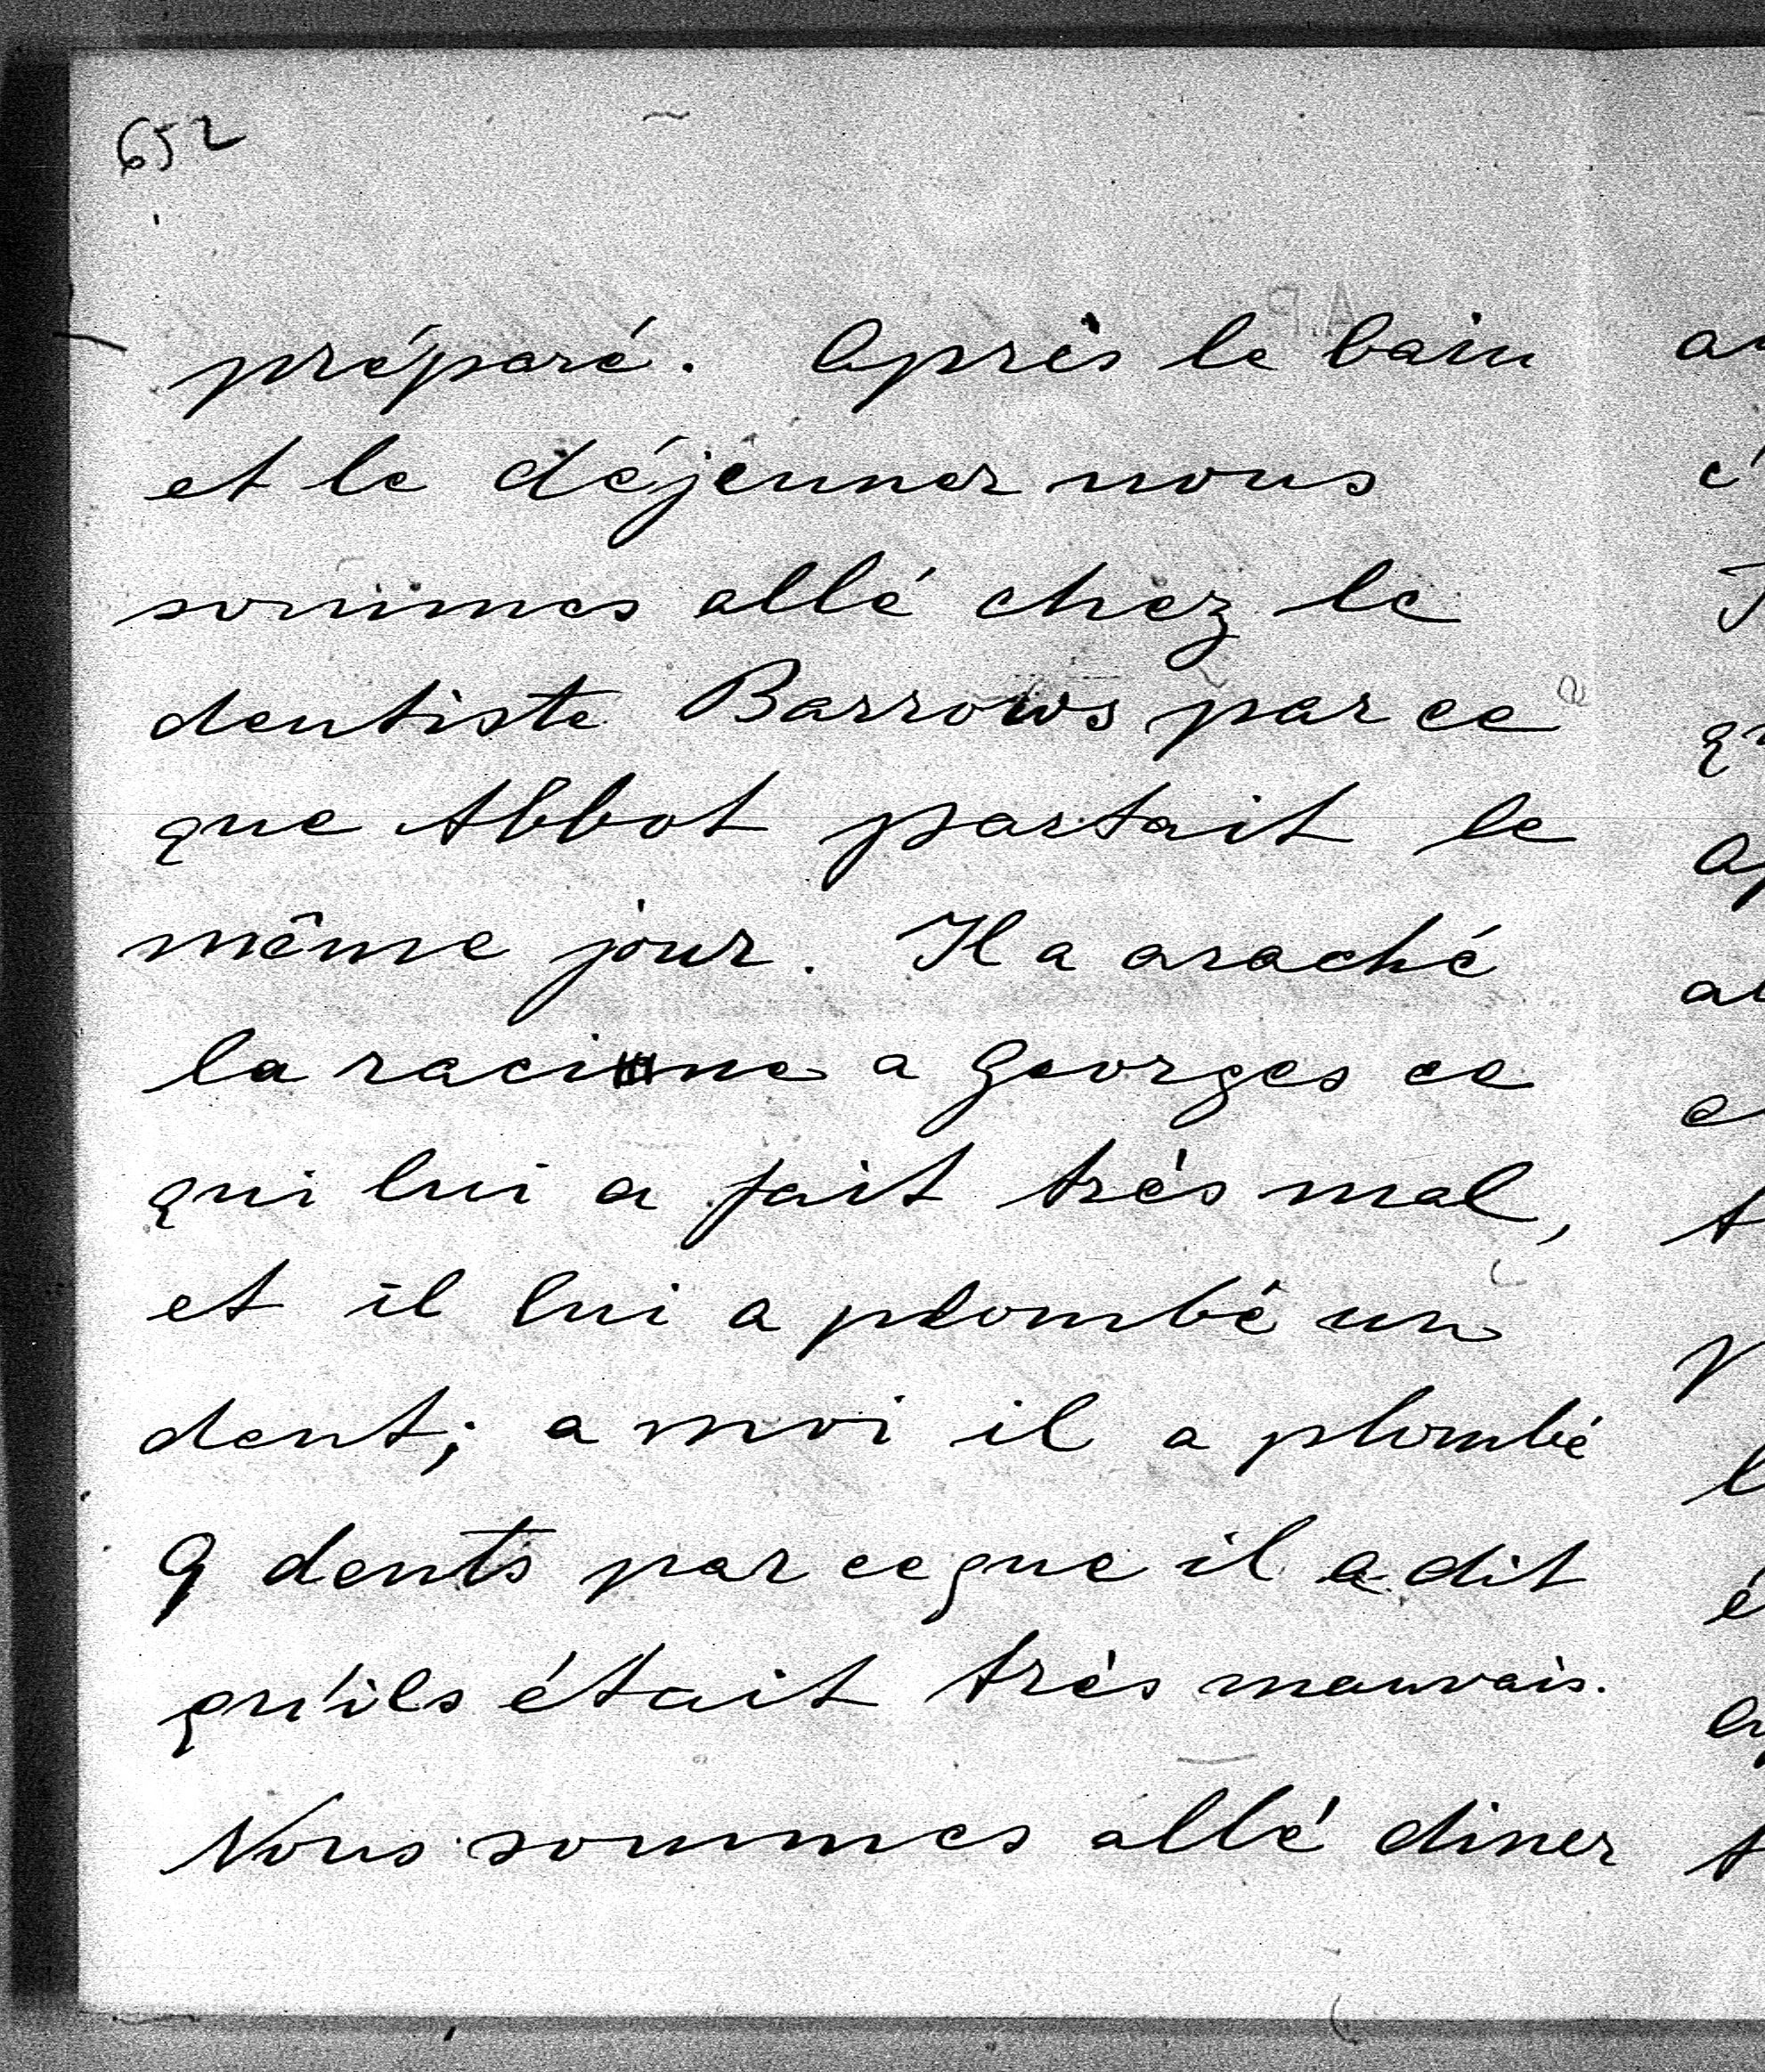 652
préparé. Après le bain
et le déjeunner nous
sommes allé chez le
dentiste Barrows par ce
que Abbot partait le
même jour. Il a araché
la racine a Georges ce
qui lui a fait très mal,
et il lui a plombé un
dent; a moi il a plombé
9 dents par ce que il a dit
qu'ils était très mauvais.
Nous sommes allé diner